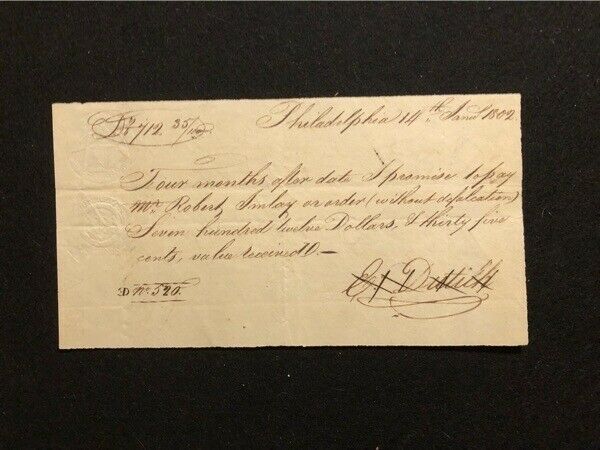 Drs 712 35/100 Philadelphia 14th Janry 1802
Four months after date I promise to pay
Mr. Robert Imlay or order (without defalcation)
Seven hundred twelve Dollars, & thirty five
cents, value received D.—
D No. 520.